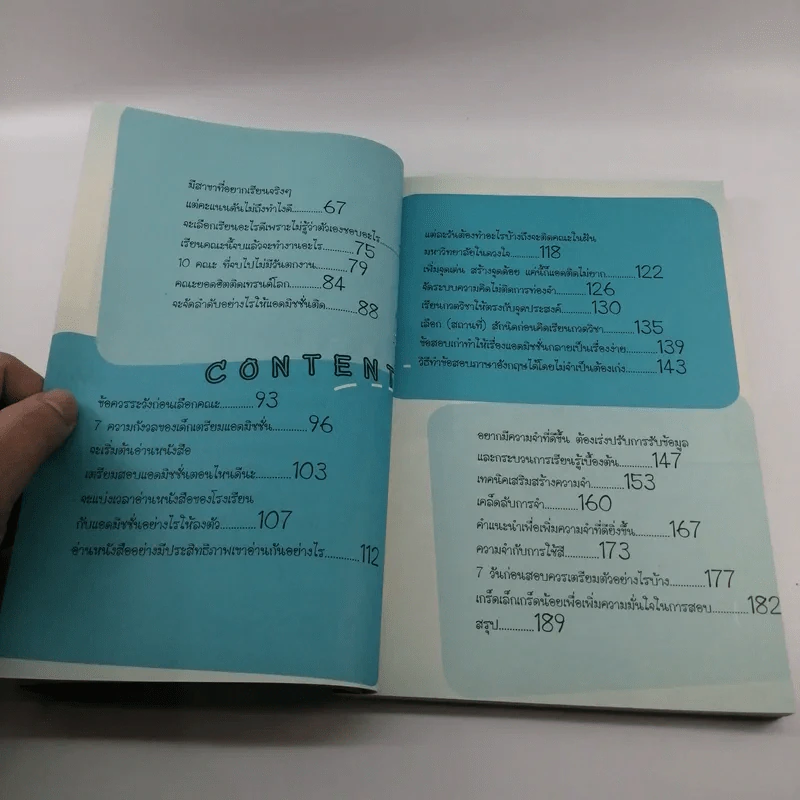 มีสาขาที่อยากเรียนจริงๆ
แต่คะแนนดันไม่ถึงทำไงดี..........67
จะเลือกเรียนอะไรดีเพราะไม่รู้ว่าตัวเองชอบอะไร
เรียนคณะนี้จบแล้วจะทำงานอะไร..........75
10 คณะ ที่จบไปไม่มีวันตกงาน..........79
คณะยอดฮิตติดเทรนด์โลก..........84
จะจัดลำดับอย่างไรให้แอดมิชชั่นติด..........88
CONTENT
ข้อควรระวังก่อนเลือกคณะ..........93
7 ความกังวลของเด็กเตรียมแอดมิชชั่น..........96
จะเริ่มต้นอ่านหนังสือ
เตรียมสอบแอดมิชชั่นตอนไหนดีนะ..........103
จะแบ่งเวลาอ่านหนังสือของโรงเรียน
กับแอดมิชชั่นอย่างไรให้ลงตัว..........107
อ่านหนังสืออย่างมีประสิทธิภาพเขาอ่านกันอย่างไร..........112
แต่ละวันต้องทำอะไรบ้างถึงจะติดคณะในฝัน
มหาวิทยาลัยในดวงใจ..........118
เพิ่มจุดเด่น สร้างจุดด้อย แค่นี้ก็แอดติดไม่ยาก..........122
จัดระบบความคิดไม่ติดการท่องจำ..........126
เรียนกวดวิชาให้ตรงกับจุดประสงค์..........130
เลือก (สถานที่) สักนิดก่อนคิดเรียนกวดวิชา..........135
ข้อสอบเก่าทำให้เรื่องแอดมิชชั่นกลายเป็นเรื่องง่าย..........139
วิธีทำข้อสอบภาษาอังกฤษได้โดยไม่จำเป็นต้องเก่ง..........143
อยากมีความจำที่ดีขึ้น ต้องเร่งปรับการรับข้อมูล
และกระบวนการเรียนรู้เบื้องต้น..........147
เทคนิคเสริมสร้างความจำ..........153
เคล็ดลับการจำ..........160
คำแนะนำเพื่อเพิ่มความจำที่ดียิ่งขึ้น..........167
ความจำกับการใช้สี..........173
7 วันก่อนสอบควรเตรียมตัวอย่างไรบ้าง..........177
เกร็ดเล็กเกร็ดน้อยเพื่อเพิ่มความมั่นใจในการสอบ..........182
สรุป..........189